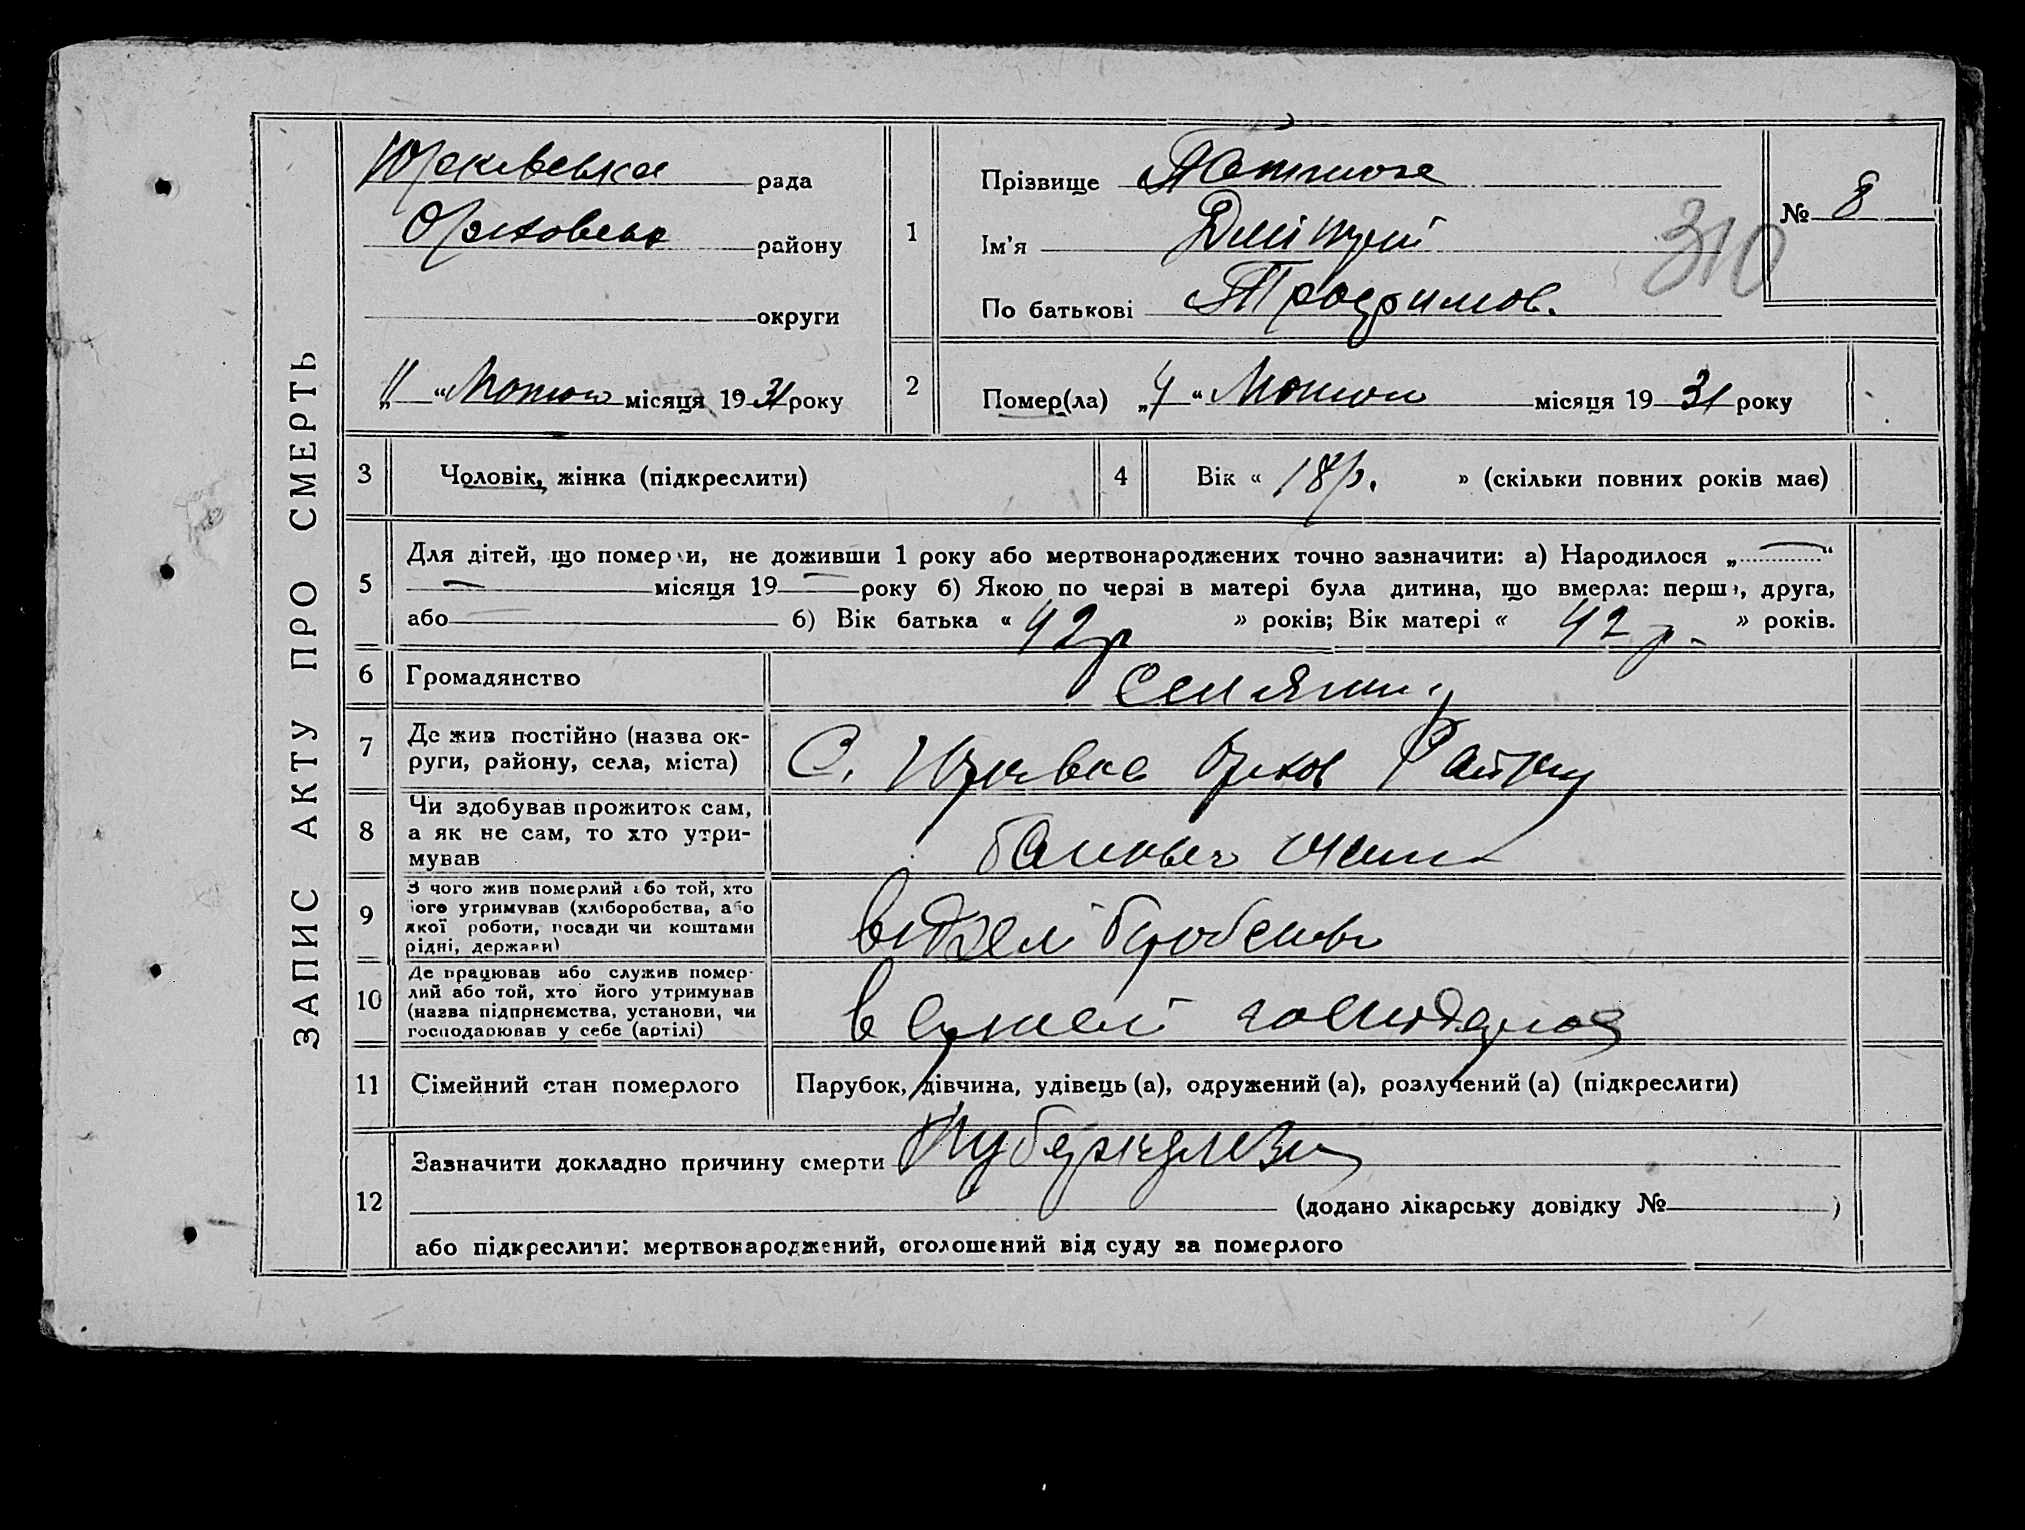 ЗАПИС АКТУ ПРО СМЕРТЬ
Юрківська рада
Оріховськ району
округи
„11“ Лютого місяця 1931 року
1
Прізвище
Ім'я Дмітрій
По батькові Трофимов.
№ 8
310
2
Помер(ла) „4“ Лютого місяця 1931 року
3
Чоловік, жінка (підкреслити)
4
Вік « 18 р. » (скільки повних років має)
5
Для дітей, що померли, не доживши 1 року або мертвонароджених точно зазначити: а) Народилося „ “
місяця 19 року б) Якою по черзі в матері була дитина, що вмерла: перша, друга,
або б) Вік батька « 42 р » років; Вік матері « 42 р. » років.
6
Громадянство селянин
7
Де жив постійно (назва ок-
руги, району, села, міста)
С. Юрківка Оріхов Району
8
Чи здобував прожиток сам,
а як не сам, то хто утри-
мував
9
З чого жив померлий або той, хто
його утримував (хліборобства, або
якої роботи, посади чи коштами
рідні, держави)
10
Де працював або служив помер-
лий або той, хто його утримував
(назва підприємства, установи, чи
господарював у себе (артілі)
11
Сімейний стан померлого
Парубок, дівчина, удівець (а), одружений (а), розлучений (а) (підкреслити)
12
Зазначити докладно причину смерти туберкульоз
(додано лікарську довідку № )
або підкреслити: мертвонароджений, оголошений від суду за померлого